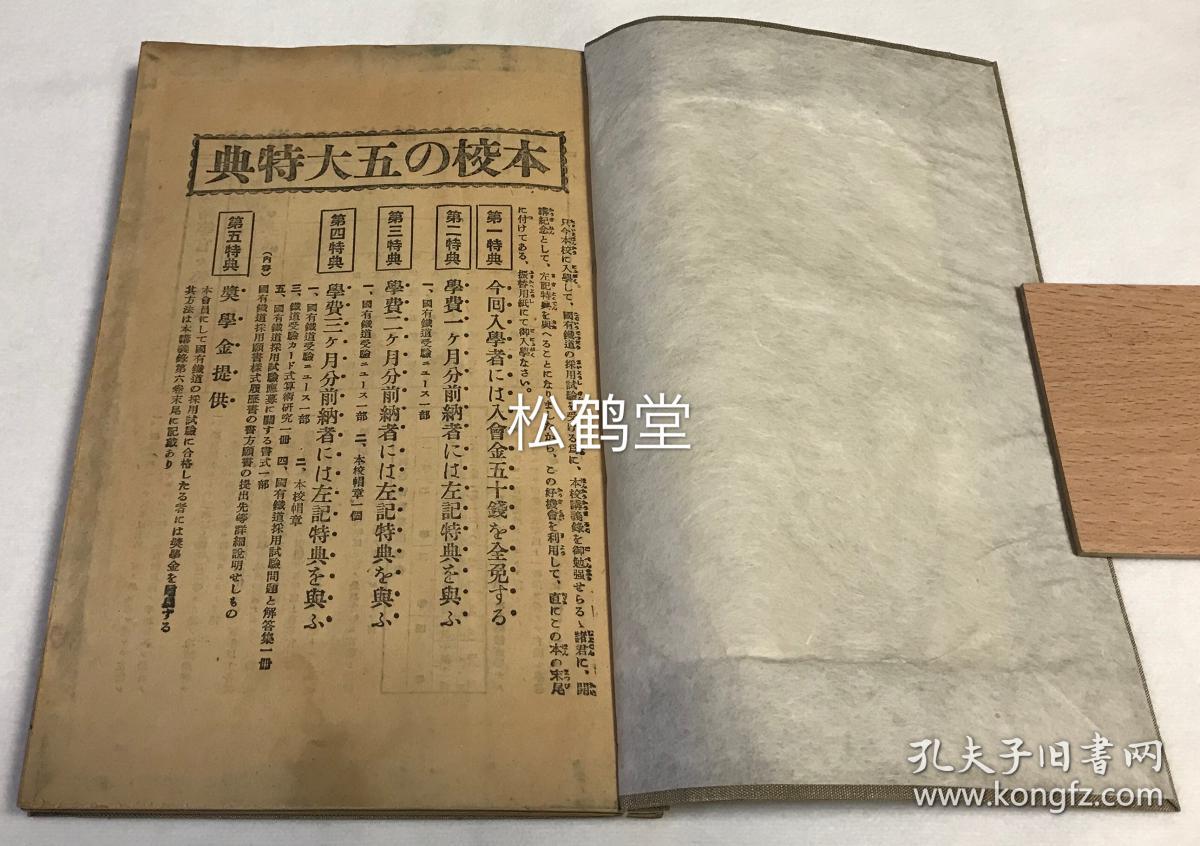 本校の五大特典
只今本校に入學して、國有鐵道の採用試驗を受ける爲に、本校講義錄を御勉强せらるゝ諸君に、開
講紀念として、左記特典を與へることになりましたから、この好機會を利用して、直にこの本の末尾
に付けてある、振替用紙にて御入學なさい。
第一特典 今囘入學者には入會金五十錢を全免する
第二特典 學費一ヶ月分前納者には左記特典を與ふ
一、國有鐵道受驗ニュース一部
第三特典 學費二ヶ月分前納者には左記特典を與ふ
一、國有鐵道受驗ニュース一部 二、本校帽章一個
第四特典 學費三ヶ月分前納者には左記特典を與ふ
一、國有鐵道受驗ニュース一部 二、本校帽章
三、鐵道受驗カード式算術硏究一冊 四、國有鐵道採用試驗問題と解答集一冊
五、國有鐵道採用試驗應募に關する書式一部
(內容) 國有鐵道採用願書樣式履歷書の書方願書の提出先等詳細說明せしもの
第五特典 奬學金提供
本會員にして國有鐵道の採用試驗に合格したる者には奬學金を する
其方法は本講義錄第六卷末尾に記載あり
松鹤堂
孔夫子旧书网
www.kongfz.com